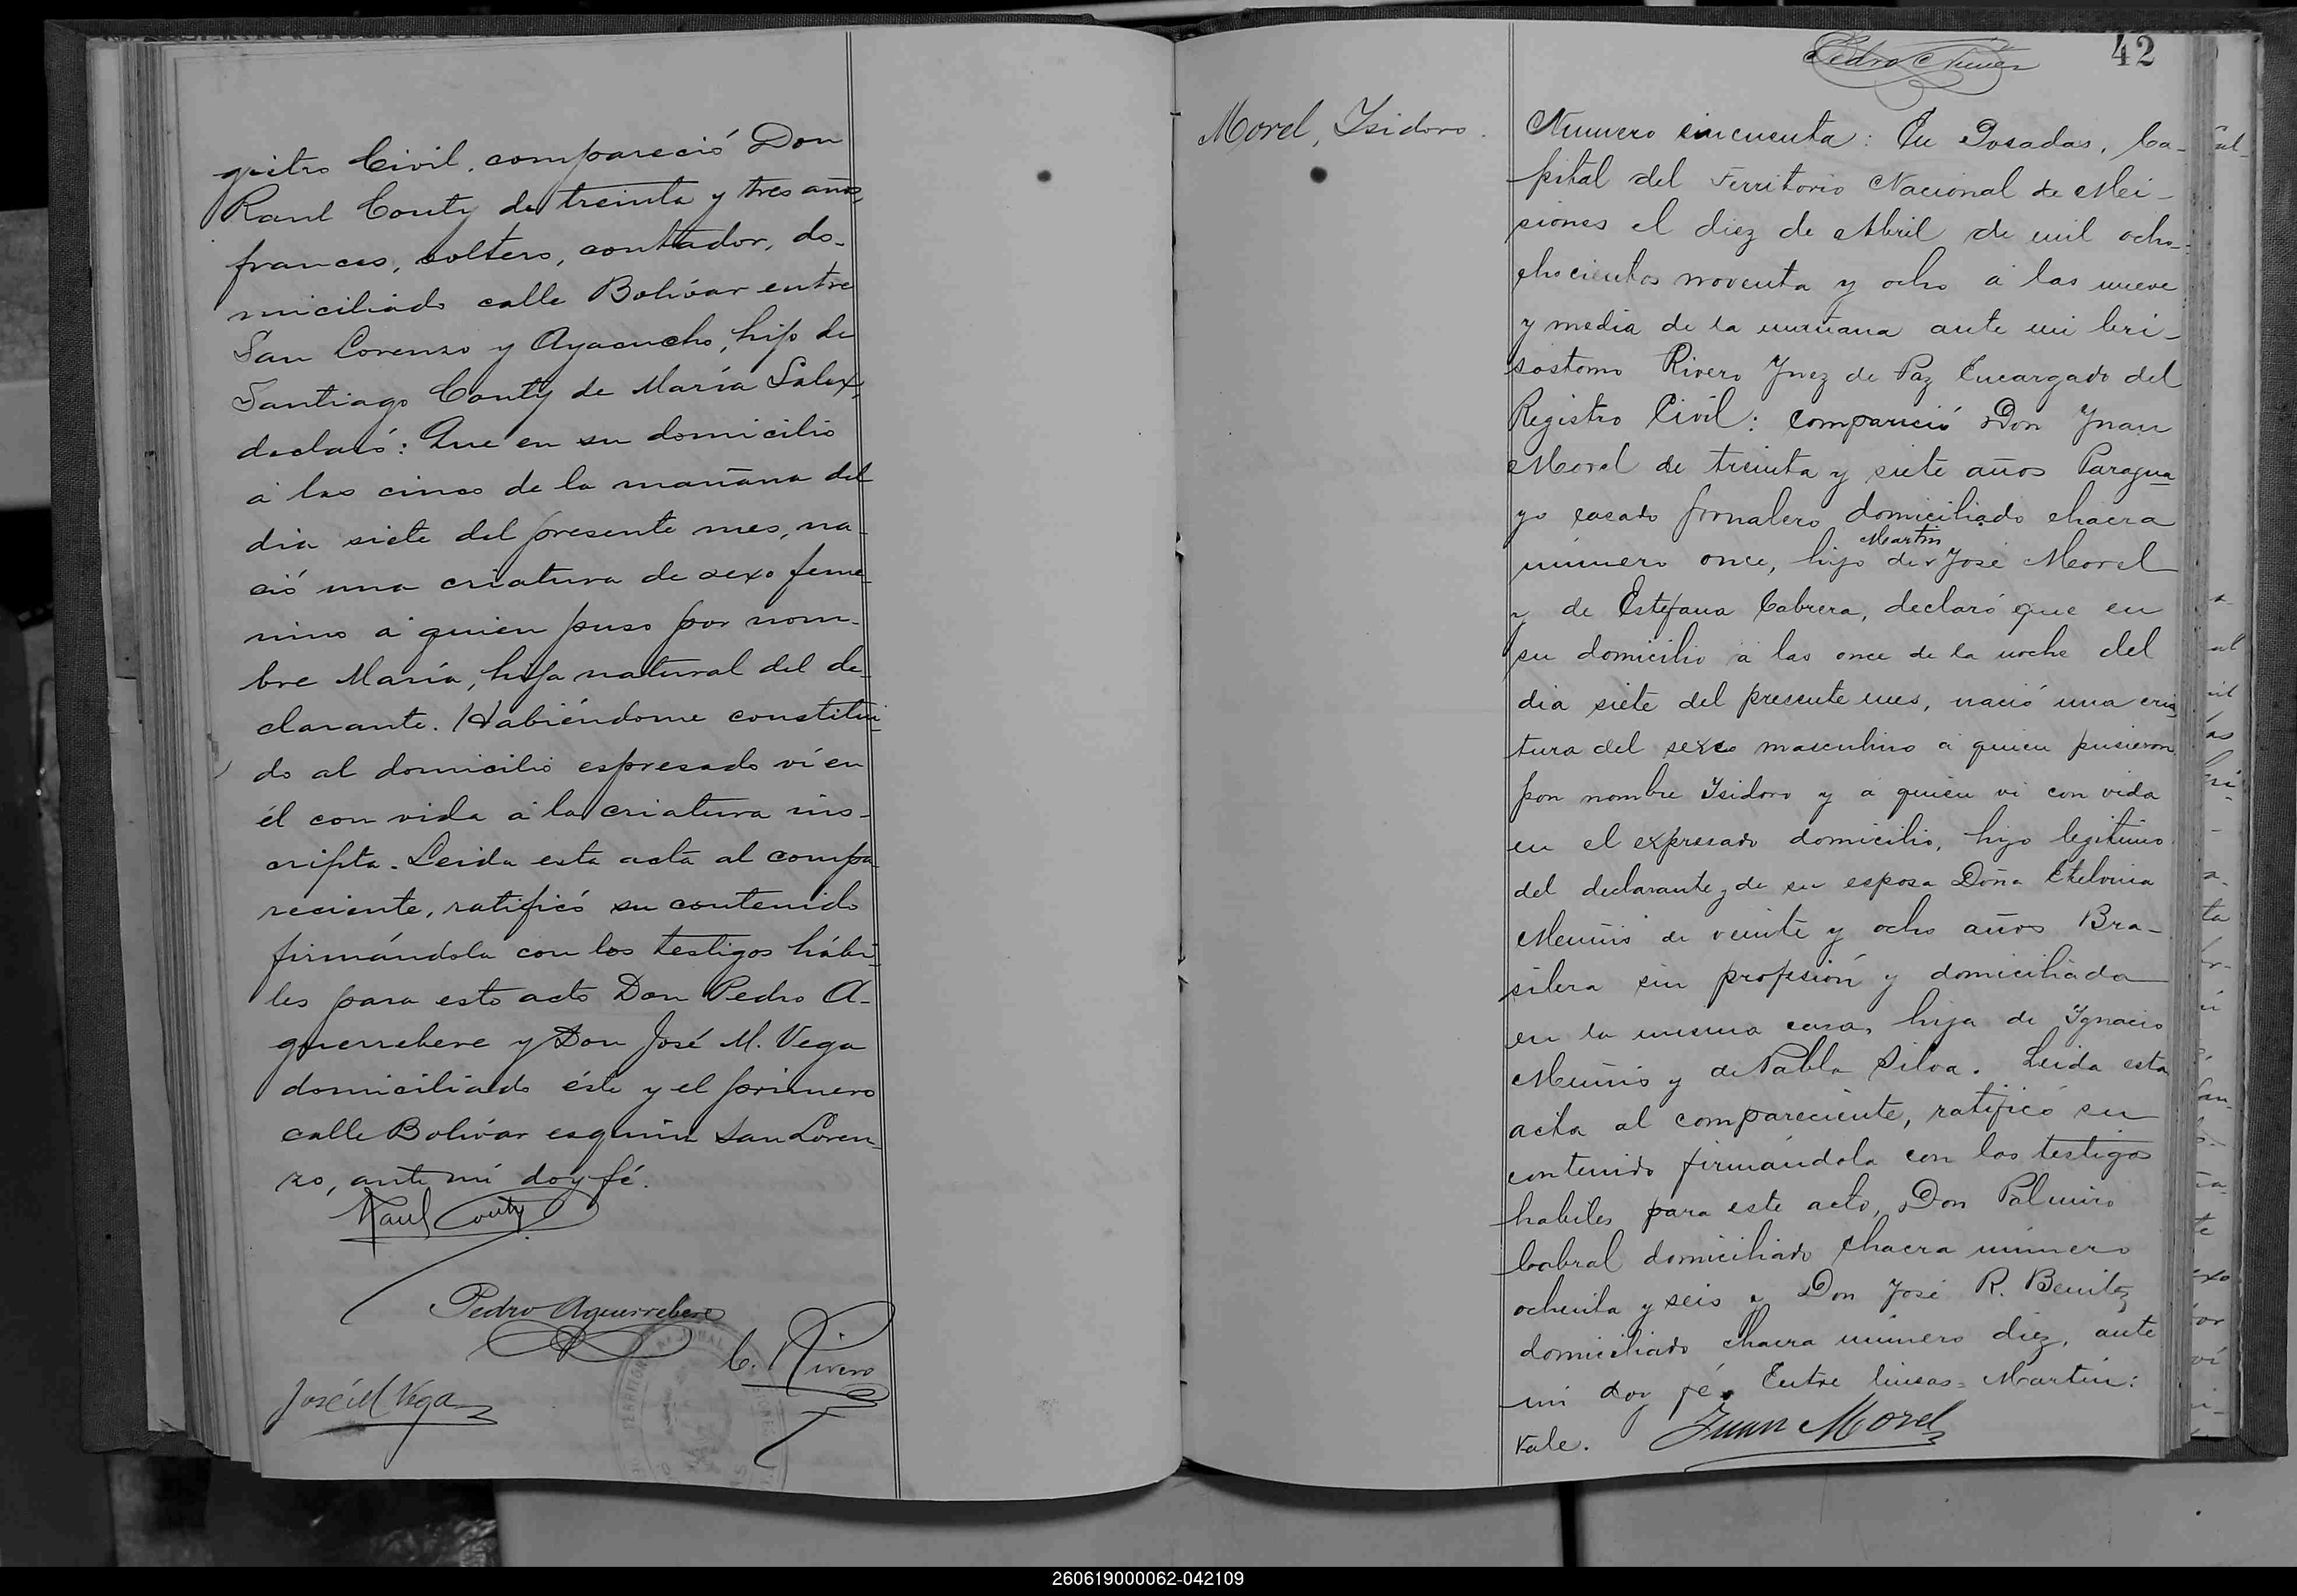 gistro Civil, compareció Don
Raul Couty de treinta y tres años,
frances, soltero, contador, do-
miciliado calle Bolívar entre
San Lorenzo y Ayacucho, hijo de
Santiago Couty de María Salex,
declaró: Que en su domicilio
á las cinco de la mañana del
dia siete del presente mes, na-
ció una criatura de sexo feme-
nino á quien puso por nom-
bre María, hija natural del de-
clarante. Habiéndome constitui-
do al domicilio espresado ví en
él con vida á la criatura ins-
cripta. Leida esta acta al compa-
reciente, ratificó su contenido
firmándola con los testigos hábi-
les para este acto Don Pedro A-
guerrebere y Don José M. Vega
domiciliado éste y el primero
calle Bolívar esquina San Loren-
zo, ante mí doy fé.
Raul Couty
Pedro Aguerrebere
C. Rivero
José M Vega
42
Morel, Isidoro.
Numero cincuenta: En Posadas, Ca-
pital del Territorio Nacional de Mei-
siones el diez de Abril de mil ocho-
chocientos noventa y ocho á las nueve
y media de la mañana ante mi Cri-
sostomo Rivero Juez de Paz Encargado del
Registro Civil: compareció Don Juan
Morel de treinta y siete años Paragua
yo casado jornalero domiciliado chacra
Martin
número once, hijo de José Morel
y de Estefana Cabrera, declaró que en
su domicilio á las once de la noche del
dia siete del presente mes, nació una cria
tura del sexo masculino á quien pusieron
pon nombre Isidoro y á quien vi con vida
en el expresado domicilio, hijo legitimo
del declarante y de su esposa Doña Etelvina
Muñis de veinte y ocho años Bra-
silera sin profesión y domiciliada
en la misma casa, hija de Ignacio
Muñis y de Pabla Silva. Leida esta
acta al compareciente, ratificó su
contenido firmándola con los testigos
habiles para este acto, Don Palmiro
Cabral domiciliado chacra número
ochenta y seis y Don José R. Benitez
domiciliado chacra número diez, ante
mi doy fé. Entre lineas = Martin:
Vale.
Juan Morel
260619000062-042109